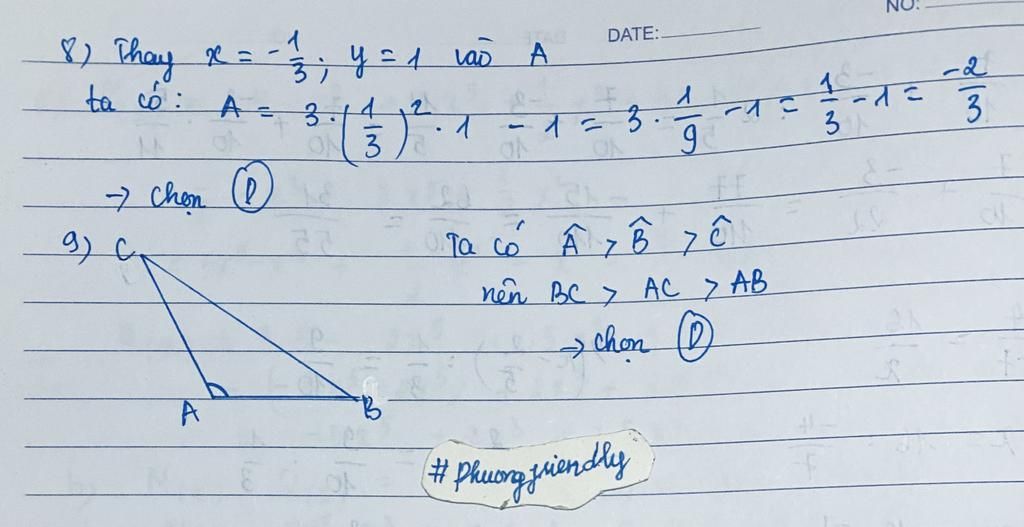 NO:
DATE:
8) Thay x = -1/3; y = 1 vào A
ta có: A = 3.(1/3)².1 - 1 = 3.1/9 - 1 = 1/3 - 1 = -2/3
→ chọn Ⓓ
9) C
Ta có Â > B̂ > Ĉ
nên BC > AC > AB
→ chọn Ⓓ
A B
#Phuongfriendly